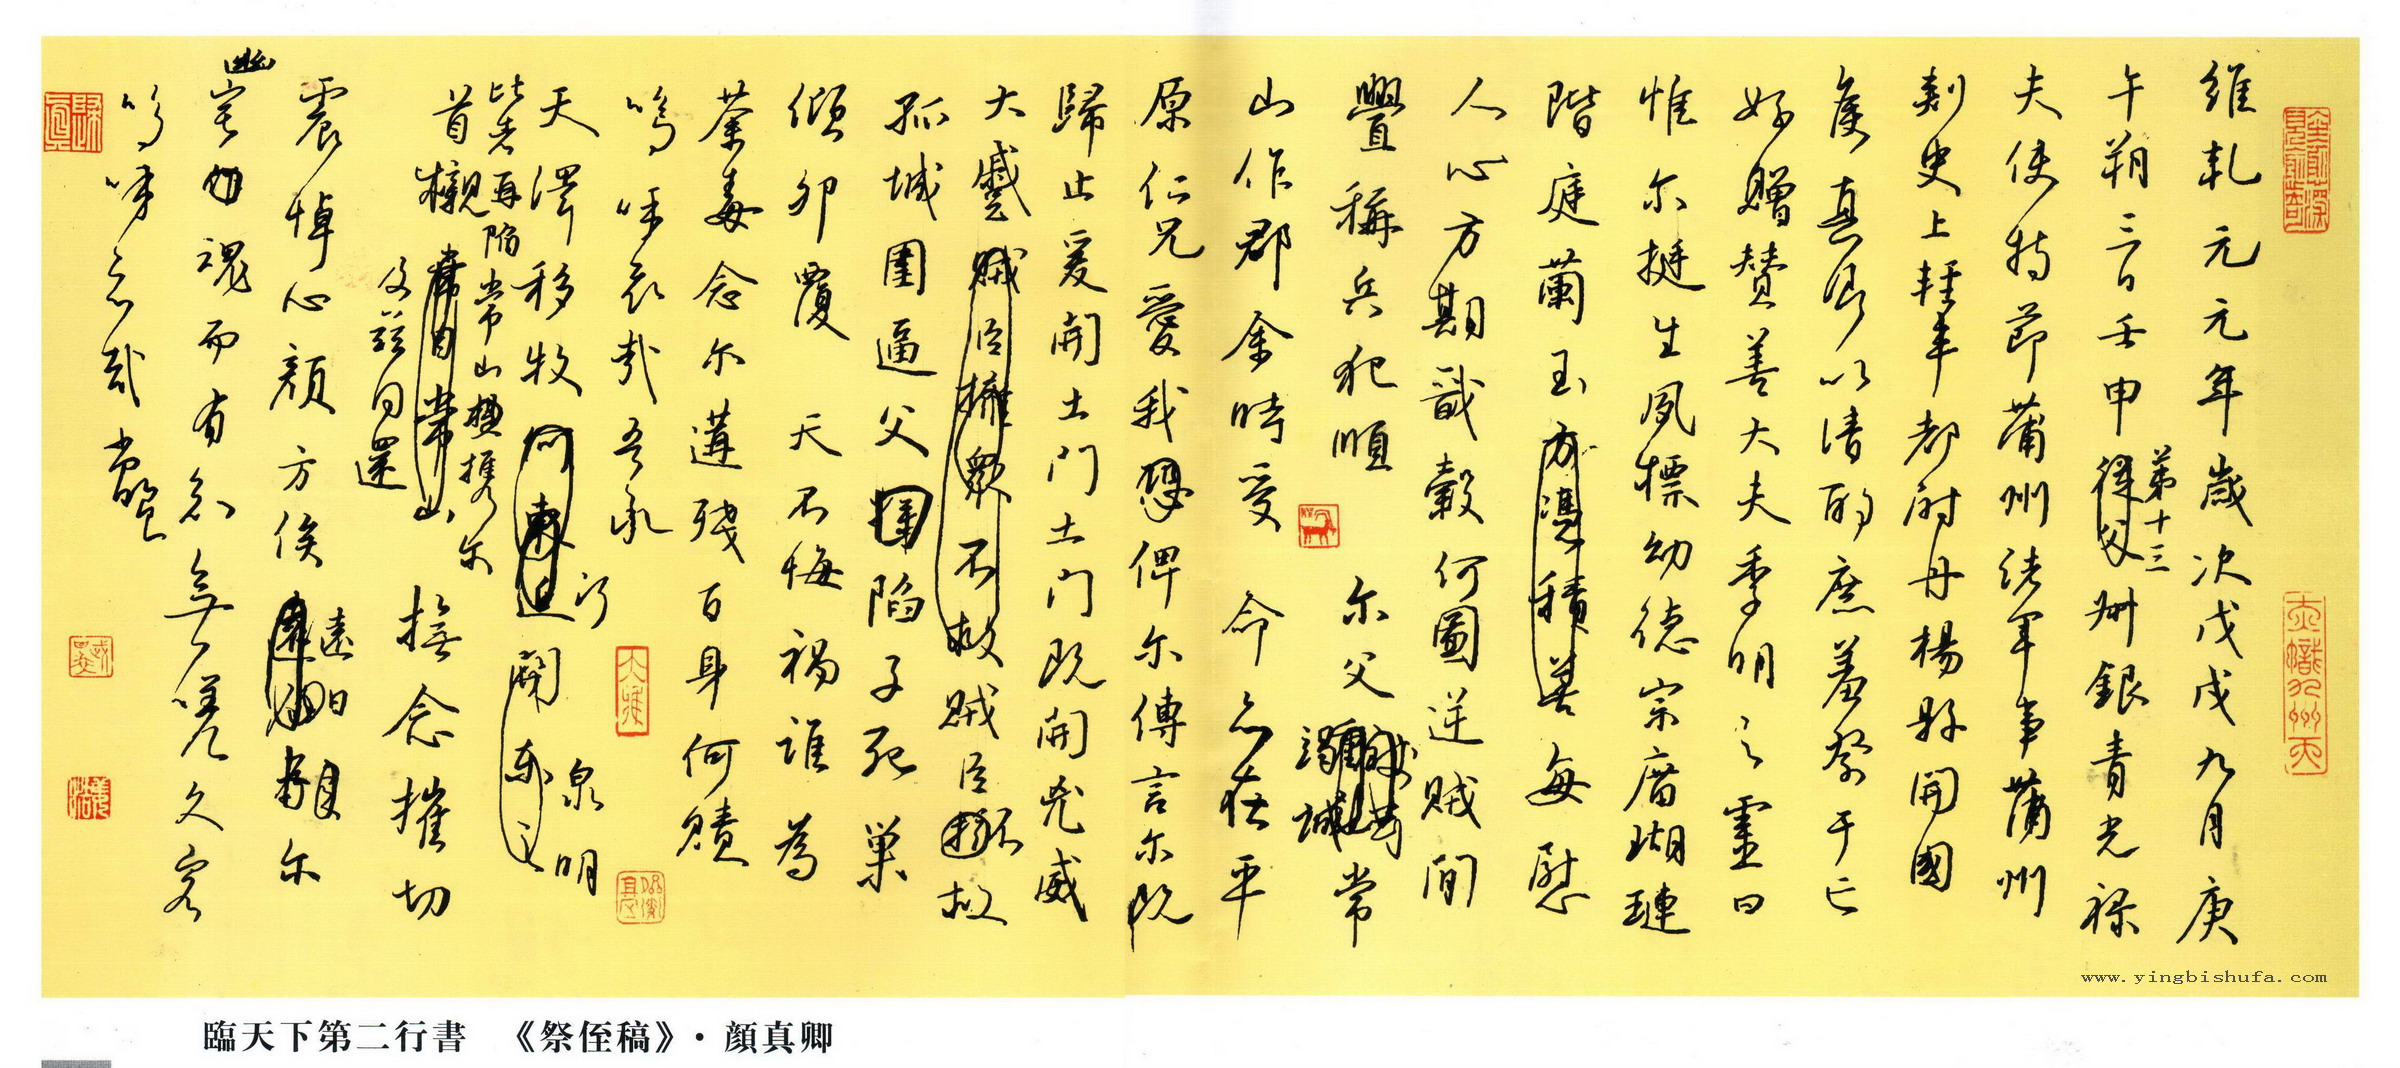 維乾元元年歲次戊戌九月庚
午朔三日壬申
第十三
從父
州銀青光祿
夫使持節蒲州諸軍事蒲州
刺史上輕車都尉丹楊縣開國
侯真卿以清酌庶羞祭于亡
姪贈贊善大夫季明之靈曰
惟尔挺生夙標幼德宗廟瑚璉
階庭蘭玉方憑積善每慰
人心方期戩穀何圖逆賊閒
釁稱兵犯順
尔父
竭誠
常
山作郡余時受命亦在平
原仁兄愛我恐俾尔傳言尔既
歸止爰開土門土門既開兇威
大蹙賊臣擁眾不救賊臣
不
救
孤城圍逼父陷子死巢
傾卵覆天不悔禍誰為
荼毒念尔遘殘百身何贖
嗚呼哀哉吾承
天澤移牧河東近
河
關
泉明
東之
比者再陷常山攜尔
首櫬
常山
及茲同還
撫念摧切
震悼心顏方俟
遠日
尔
幽宅
魂而有知無嗟久客
嗚呼哀哉尚饗
www.yingbishufa.com
臨天下第二行書 《祭侄稿》·顏真卿